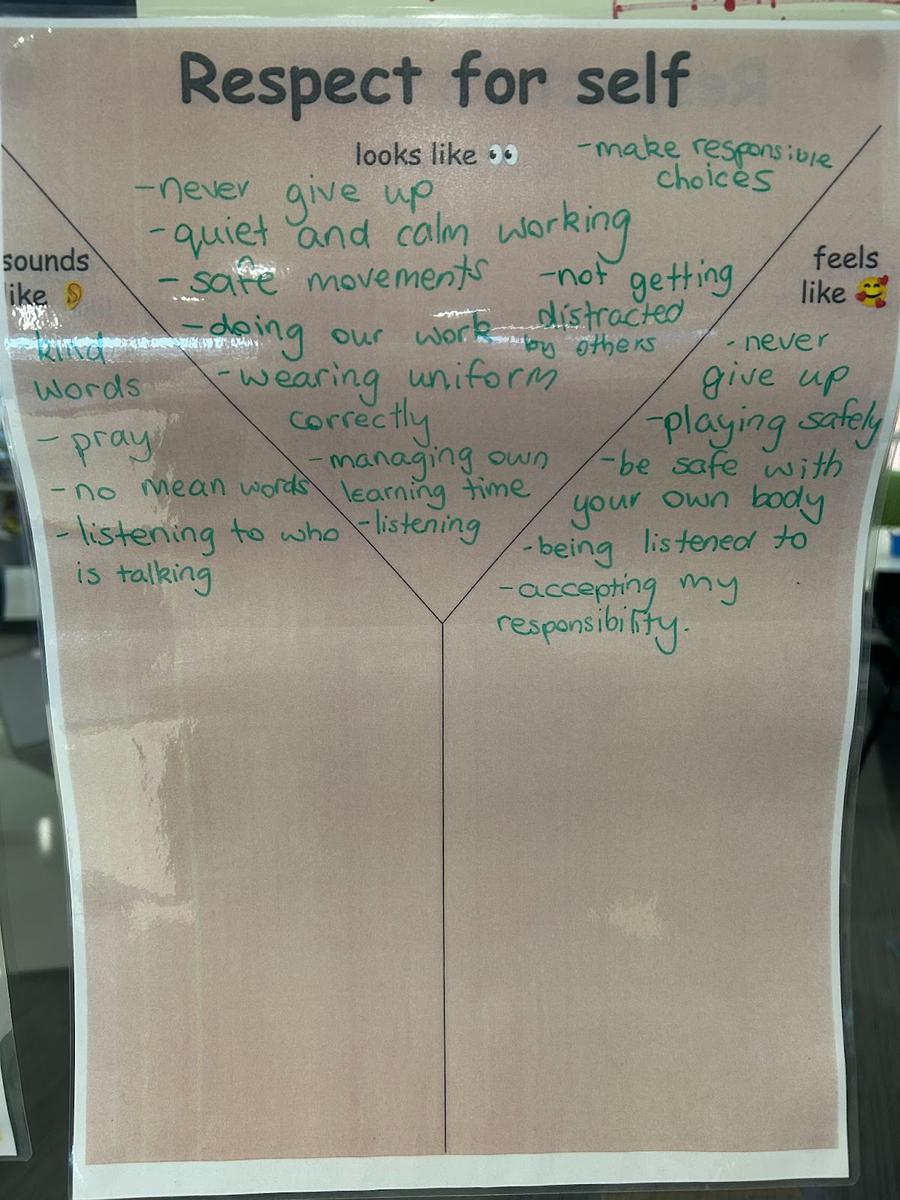 Respect for self
looks like 👀
-never give up
-quiet and calm working
-safe movements
-doing our work
-wearing uniform
correctly
-managing own
learning time
-listening
-make responsible
choices
-not getting
distracted
by others
sounds
like 👂
kind
words
-pray
-no mean words
-listening to who
is talking
feels
like 🥰
-never
give up
-playing safely
-be safe with
your own body
-being listened to
-accepting my
responsibility.